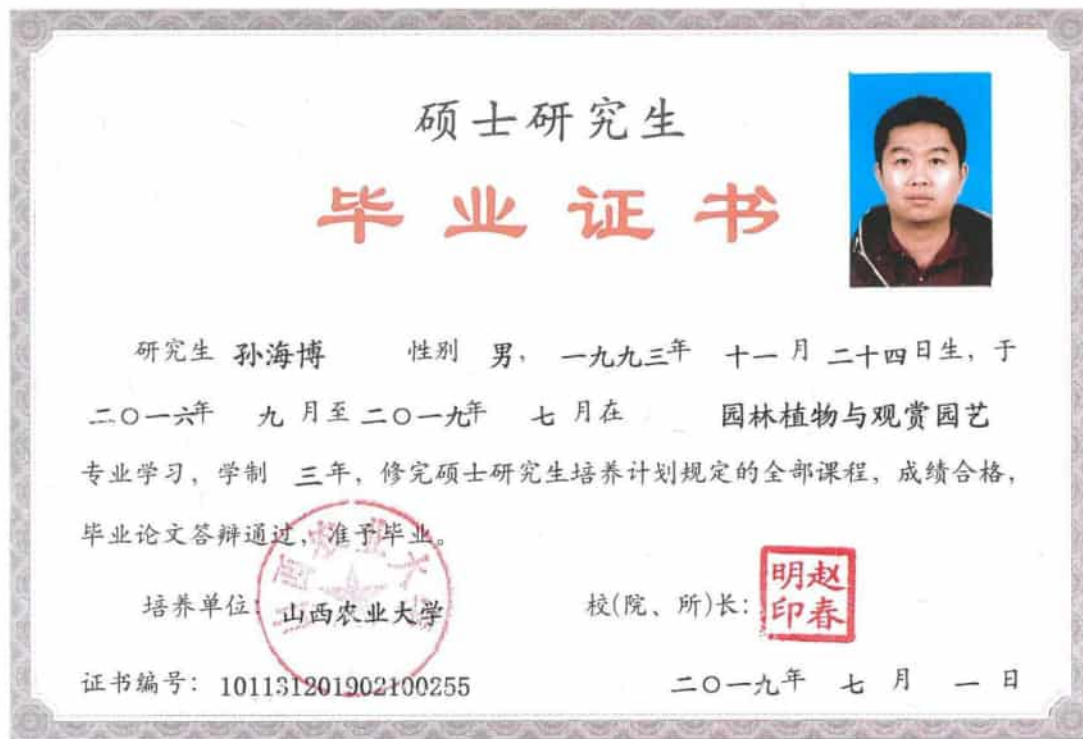 硕士研究生
毕业证书
研究生 孙海博 性别 男， 一九九三年 十一月 二十四日生，于
二〇一六年 九月至二〇一九年 七月在 园林植物与观赏园艺
专业学习，学制 三年，修完硕士研究生培养计划规定的全部课程，成绩合格，
毕业论文答辩通过，准予毕业。
山西农业大学
培养单位：山西农业大学 校(院、所)长：
赵春明印
证书编号：101131201902100255 二〇一九年 七月 一日